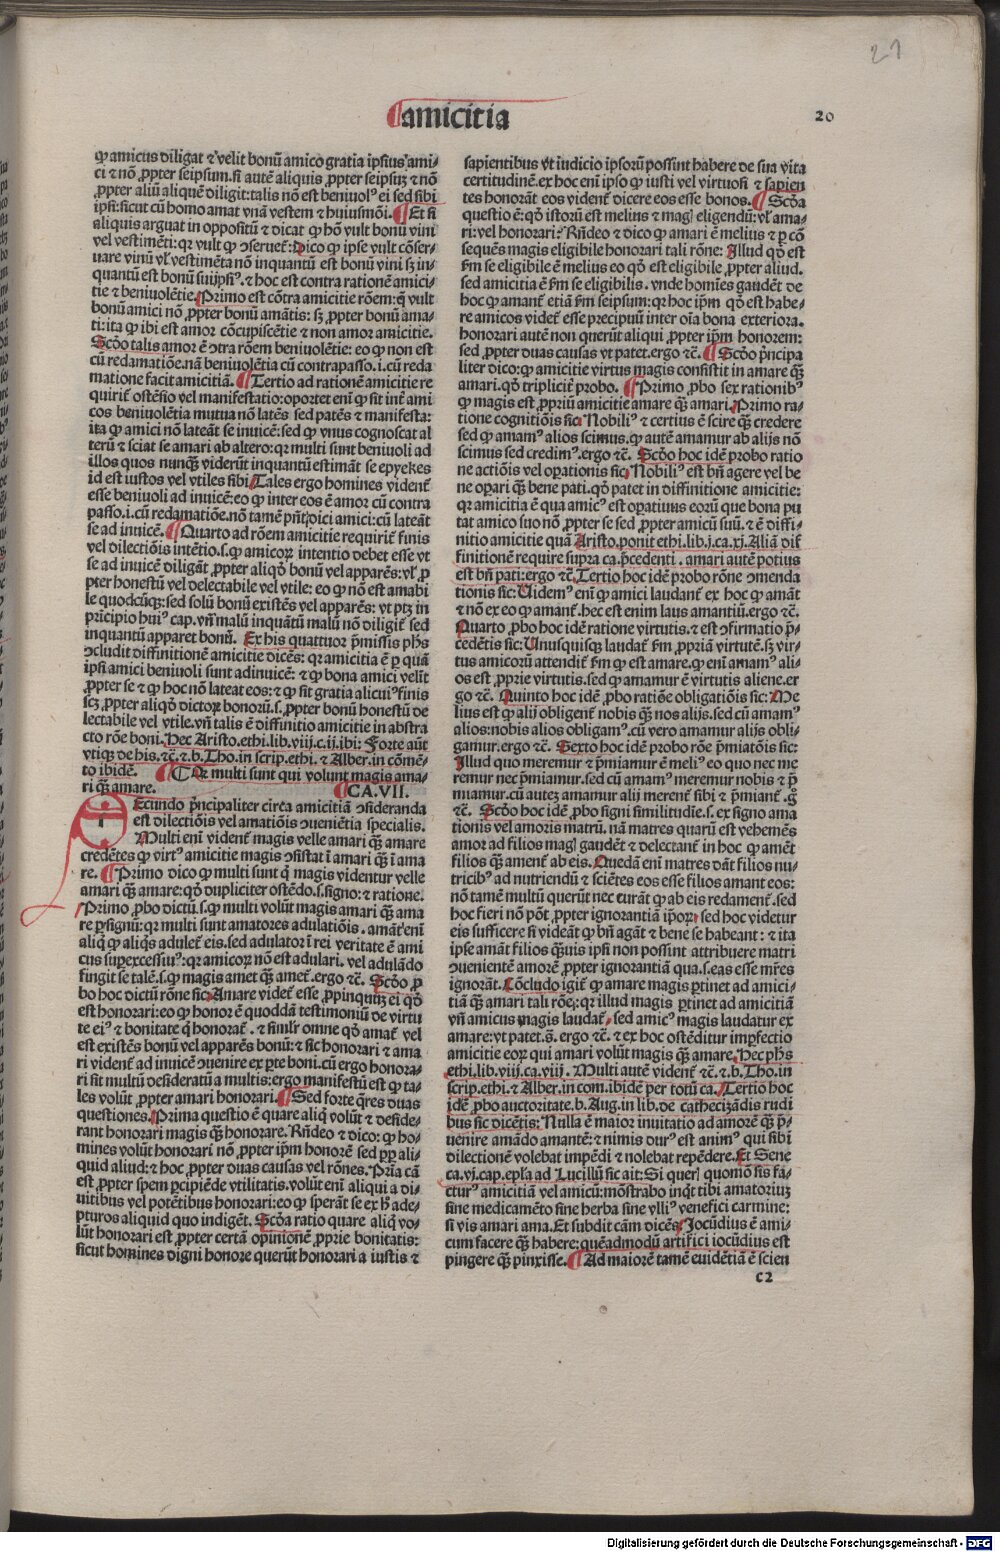 21
¶amicitia
20
ꝙ amicus diligat ⁊ velit bonū amico gratia ipsius ami-
ci ⁊ nō ꝓpter seipsum. si autē aliquis ꝓpter seipsuꝫ ⁊ nō
ꝓpter aliū aliquē diligit: talis nō est beniuolꝰ ei sed sibi
ipsi: sicut cū homo amat vnā vestem ⁊ huiusmōi. ¶ Et si
aliquis arguat in oppositū ⁊ dicat ꝙ hō vult bonū vini
vel vestimēti: qꝛ vult ꝙ ↄserueť: Dico ꝙ ipse vult cōser-
uare vinū vľ vestimēta nō inquantū est bonū vini sꝫ in-
quantū est bonū suiipsiꝰ. ⁊ hoc est contra rationē amici-
tie ⁊ beniuolētie. Primo est cōtra amicitie rōem: q̃ vult
bonū amici nō ꝓpter bonū amātis: sꝫ ꝓpter bonū ama-
ti: ita ꝙ ibi est amor cōcupiscētie ⁊ non amor amicitie.
Scďo talis amor ē ↄtra rōem beniuolētie: eo ꝙ non est
cū redamatiōe. nā beniuolētia cū contrapasso. i. cū reda
matione facit amicitiā. ¶ Tertio ad rationē amicitie re
quiriť ostēsio vel manifestatio: oportet eni ꝙ sit inť ami
cos beniuolētia mutua nō latēs sed patēs ⁊ manifesta:
ita ꝙ amici nō lateāt se inuicē: sed ꝙ vnus cognoscat al
terū ⁊ sciat se amari ab altero: qꝛ multi sunt beniuoli ad
illos quos nunq̄ȝ viderūt inquantū estimāt se epyekes
id est iustos vel vtiles sibi. Tales ergo homines videnť
esse beniuoli ad inuicē: eo ꝙ inter eos ē amor cū contra
passo. i. cū redamatiōe. nō tamē pñt dici amici: cū lateāt
se ad inuicē. ¶ Quarto ad rōem amicitie requiriť finis
vel dilectiōis intētio. s. ꝙ amicoꝝ intentio debet esse vt
se ad inuicē diligāt ꝓpter aliqď bonū vel apparēs: vľ ꝓ
pter honestū vel delectabile vel vtile: eo ꝙ nō est amabi
le quodcūqꝫ: sed solū bonū existēs vel apparēs: vt ptꝫ in
prīcipio huiꝰ cap. vñ malū inquātū malū nō diligiť sed
inquantū apparet bonū. Ex his quattuor p̄missis phs
ↄcludit diffinitionē amicitie dicēs: qꝛ amicitia ē ꝑ quā
ipsi amici beniuoli sunt adinuicē: ⁊ ꝙ bona amici velīt
ꝓpter se ⁊ ꝙ hoc nō lateat eos: ⁊ ꝙ sit gratia alicuiꝰ finis
scꝫ ꝓpter aliqď dictoꝝ bonorū. s. ꝓpter bonū honestū de
lectabile vel vtile. vñ talis ē diffinitio amicitie in abstra
cto rōe boni. Hec Aristo. ethi. lib. viij. c. ij. ibi: Forte aūt
vtiqꝫ de his. ⁊c̄. ⁊ b. Tho. in scrip. ethi. ⁊ Alber. in cōmē-
to ibidē. ¶ C Qꝛ multi sunt qui volunt magis ama-
ri q̄ȝ amare. ¶ CA. VII.
Ecundo p̄ncipaliter circa amicitiā ↄsideranda
est dilectiōis vel amatiōis ↄueniētia specialis.
Multi eni videnť magis velle amari q̄ȝ amare
credētes ꝙ virtꝰ amicitie magis ↄsistat ī amari q̄ȝ ī ama
re. ¶ Primo dico ꝙ multi sunt q̇ magis videntur velle
amari q̄ȝ amare: qď dupliciter ostēdo. s. signo: ⁊ ratione.
Primo ꝓbo dictū. s. ꝙ multi volūt magis amari q̄ȝ ama
re ꝑ signū: qꝛ multi sunt amatores adulatiōis. amāt eni
aliq̇ ꝙ aliq̇s aduleť eis. sed adulator ī rei veritate ē ami
cus suꝑexcessiuꝰ: qꝛ amicoꝝ nō est adulari. vel adulādo
fingit se talē. s. ꝙ magis amet q̄ȝ ameť. ergo ⁊c̄. Scďo ꝓ
bo hoc dictū rōne sic: Amare videť esse ꝓpinquūꝫ ei qď
est honorari: eo ꝙ honor ē quoddā testimoniū de virtu
te eiꝰ ⁊ bonitate q̇ honorať. ⁊ similr omne qď amať vel
est existēs bonū vel apparēs bonū: ⁊ sic honorari ⁊ ama
ri videnť ad inuicē ↄuenire ex ꝑte boni. cū ergo honora-
ri sit multū desideratū a multis: ergo manifestū est ꝙ ta-
les volūt ꝓpter amari honorari. ¶ Sed forte q̄res duas
questiones. Prima questio ē quare aliq̇ volūt ⁊ deside-
rant honorari magis q̄ȝ honorare. Rñdeo ⁊ dico: ꝙ ho-
mines volūt honorari nō ꝓpter ipm honorē sed ꝓp̄ ali-
quid aliud: ⁊ hoc ꝓpter duas causas vel rōnes. Pria cā
est ꝓpter spem ꝑcipiēde vtilitatis. volūt eni aliqui a di-
uitibus vel potētibus honorari: eo ꝙ sperāt se ex h̄ ade-
pturos aliquid quo indigēt. Scďa ratio quare aliq̇ vo-
lūt honorari est ꝓpter certā opinionē ꝓprie bonitatis:
sicut homines digni honore querūt honorari a iustis ⁊
sapientibus vt iudicio ipsorū possint habere de sua vita
certitudinē. ex hoc eni ipso ꝙ iusti vel virtuosi ⁊ sapien
tes honorāt eos videnť dicere eos esse bonos. ¶ Scďa
questio ē: qď istorū est melius ⁊ magꝭ eligendū: vľ ama-
ri: vel honorari? Rñdeo ⁊ dico ꝙ amari ē melius ⁊ ꝑ cō
sequēs magis eligibile honorari tali rōne: Illud qď est
ẜm se eligibile ē melius eo qď est eligibile ꝓpter aliud.
sed amicitia ē ẜm se eligibilis. vnde homīes gaudēt de
hoc ꝙ amanť etiā ẜm seipsum: qꝛ hoc ipm qď est habe-
re amicos videť esse precipuū inter oīa bona exteriora.
honorari autē non querūt aliqui ꝓpter ipm honorem:
sed ꝓpter duas causas vt patet. ergo ⁊c̄. ¶ Scďo p̄ncipa
liter dico: ꝙ amicitie virtus magis consistit in amare q̄ȝ
amari. qď tripliciť probo. ¶ Primo ꝓbo sex rationibꝰ
ꝙ magis est ꝓpriū amicitie amare q̄ȝ amari. Primo ra-
tione cognitiōis sic: Nobiliꝰ ⁊ certius ē scire q̄ȝ credere
sed ꝙ amamꝰ alios scimus. ꝙ autē amamur ab alijs nō
scimus sed credimꝰ. ergo ⁊c̄. Scďo hoc idē probo ratio
ne actiōis vel oꝑationis sic: Nobiliꝰ est bñ agere vel be
ne oꝑari q̄ȝ bene pati. qď patet in diffinitione amicitie:
qꝛ amicitia ē qua amicꝰ est oꝑatiuus eorū que bona pu
tat amico suo nō ꝓpter se sed ꝓpter amicū suū. ⁊ ē diffi-
nitio amicitie quā Aristo. ponit ethi. lib. j. ca. xj. Aliā dif
finitionē require supra ca. p̄cedenti. amari autē potius
est bñ pati: ergo ⁊c̄. Tertio hoc idē probo rōne ↄmenda
tionis sic: Videmꝰ eni ꝙ amici laudanť ex hoc ꝙ amāt
⁊ nō ex eo ꝙ amanť. hec est enim laus amantiū. ergo ⁊c̄.
Quarto ꝓbo hoc idē ratione virtutis. ⁊ est ↄfirmatio p̄-
cedētis sic: Vnusquisqꝫ laudať ẜm ꝓpriā virtutē. sꝫ vir-
tus amicorū attendiť ẜm ꝙ est amare. ꝙ eni amamꝰ ali-
os est ꝓprie virtutis. sed ꝙ amamur ē virtutis aliene. er
go ⁊c̄. Quinto hoc idē ꝓbo ratiōe obligatiōis sic: Me
lius est ꝙ alij obligenť nobis q̄ȝ nos alijs. sed cū amamꝰ
alios: nobis alios obligamꝰ. cū vero amamur alijs obli-
gamur. ergo ⁊c̄. Sexto hoc idē probo rōe p̄miatōis sic:
Illud quo meremur ⁊ p̄miamur ē meliꝰ eo quo nec me
remur nec p̄miamur. sed cū amamꝰ meremur nobis ⁊ p̄
miamur. cū auteꝫ amamur alij merenť sibi ⁊ p̄mianť. gͦ
⁊c̄. Scďo hoc idē ꝓbo signi similitudīe. s. ex signo ama
tionis vel amoris matrū. nā matres quarū est vehemēs
amor ad filios magꝭ gaudēt ⁊ delectanť in hoc ꝙ amēt
filios q̄ȝ amenť ab eis. Quedā eni matres dāt filios nu-
tricibꝰ ad nutriendū ⁊ sciētes eos esse filios amant eos:
nō tamē multū querūt nec curāt ꝙ ab eis redamenť. sed
hoc fieri nō pōt ꝓpter ignorantiā ipoꝝ. sed hoc videtur
eis sufficere si videāt ꝙ bñ agāt ⁊ bene se habeant: ⁊ ita
ipse amāt filios q̄ȝuis ipsi non possint attribuere matri
ↄuenientē amorē ꝓpter ignorantiā qua. s. eas esse mr̄es
ignorāt. Cōcludo igiť ꝙ amare magis ꝑtinet ad amici-
tiā q̄ȝ amari tali rōe: qꝛ illud magis ꝑtinet ad amicitiā
vñ amicus magis laudať. sed amicꝰ magis laudatur ex
amare: vt patet. g̊. ergo ⁊c̄. ⁊ ex hoc ostēditur imꝑfectio
amicitie eoꝝ qui amari volūt magis q̄ȝ amare. Hec phs
ethi. lib. viij. ca. viij. Multi autē videnť ⁊c̄. ⁊ b. Tho. in
scrip. ethi. ⁊ Alber. in com. ibidē per totū ca. Tertio hoc
idē ꝓbo auctoritate. b. Aug. in lib. de cathecizādis rudi
bus sic dicētis: Nulla ē maior inuitatio ad amorē q̄ȝ p̄-
uenire amādo amantē: ⁊ nimis durꝰ est animꝰ qui sibi
dilectionē volebat impēdi ⁊ nolebat repēdere. Et Sene
ca. vj. cap. epľa ad Lucillū sic ait: Si querꝭ quomō sis fa-
cturꝰ amicitiā vel amicū: mōstrabo inqͭt tibi amatoriuꝫ
sine medicamēto sine herba sine vlliꝰ venefici carmine:
si vis amari ama. Et subdit cām dicēs: Jocūdius ē ami-
cum facere q̄ȝ habere: quēadmodū artifici iocūdius est
pingere q̄ȝ pinxisse. ¶ Ad maiorē tamē euidētiā ē scien
c2
Digitalisierung gefördert durch die Deutsche Forschungsgemeinschaft - DFG